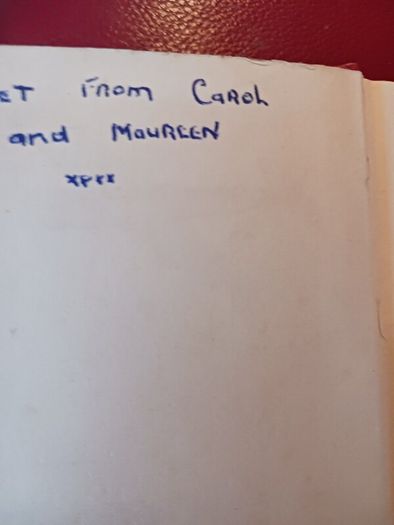 ET From Carol
and Maureen
xxxx